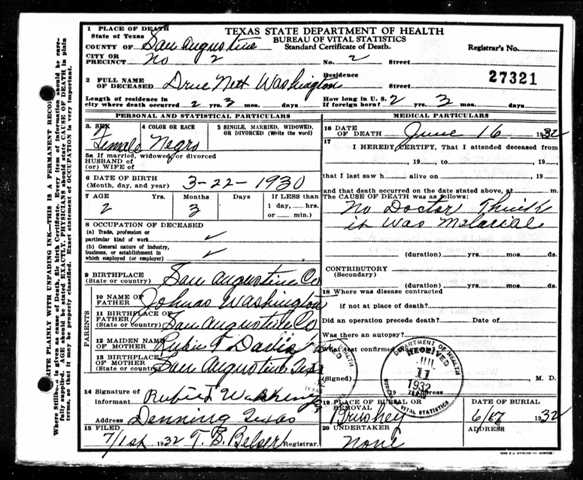 1 PLACE OF DEATH
State of Texas
TEXAS STATE DEPARTMENT OF HEALTH
BUREAU OF VITAL STATISTICS
Standard Certificate of Death.
COUNTY OF San Augustine
Registrar's No.
CITY OR PRECINCT No 2 No. 2 Street
2 FULL NAME OF DECEASED Washington
Residence No. Street
27321
Length of residence in city where death occurred 2 yrs. 3 mos. days
How long in U. S. if foreign born? 2 yrs. 3 mos. days
PERSONAL AND STATISTICAL PARTICULARS
MEDICAL PARTICULARS
3. SEX Female
4 COLOR OR RACE Negro
5 SINGLE, MARRIED, WIDOWED, OR DIVORCED (Write the word)
5a If married, widowed, or divorced
HUSBAND OF
(or) WIFE OF
6 DATE OF BIRTH
(Month, day, and year) 3-22-1930
7 AGE 2 Months 3 Days If LESS than 1 day, hrs. or min.
8 OCCUPATION OF DECEASED
(a) Trade, profession or particular kind of work
(b) General nature of industry, business, or establishment in which employed
9 BIRTHPLACE
(State or country) San Augustine Co
PARENTS
10 NAME OF FATHER Washington
11 BIRTHPLACE OF FATHER
(State or country) San Augustine Co
12 MAIDEN NAME OF MOTHER
13 BIRTHPLACE OF MOTHER
(State or country) San Augustine
14 Signature of informant
Address Denning Texas
15 FILED 7/1st 1932 T. B. Belser Registrar.
16 DATE OF DEATH June 16 1932
17 I HEREBY CERTIFY, That I attended deceased
from 19 to 19
that I last saw h alive on 19
and that death occurred on the date stated above, at m.
The CAUSE OF DEATH was as follows:
No Doctor Think
it Was Malarial
(duration) yrs. mos. ds.
CONTRIBUTORY
(Secondary)
(duration) yrs. mos. ds.
18 Where was disease contracted
if not at place of death?
Did an operation precede death? Date of
Was there an autopsy?
What test confirmed
(Signed) M. D.
DEPARTMENT OF HEALTH
RECEIVED
11
1932
BUREAU OF VITAL STATISTICS
19 PLACE OF BURIAL OR REMOVAL
DATE OF BURIAL 1932
20 UNDERTAKER None
ADDRESS